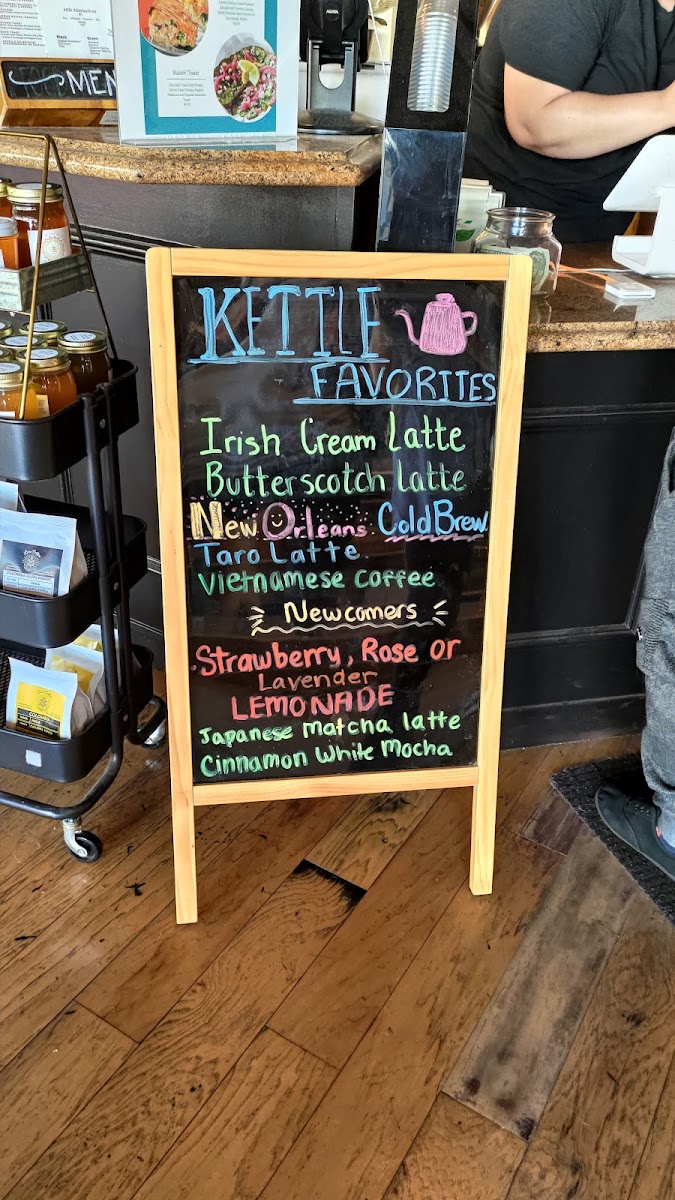 MENU
KETTLE
FAVORITES
Irish Cream Latte
Butterscotch latte
New Orleans Cold Brew
Taro Latte
Vietnamese coffee
Newcomers
Strawberry, Rose or
Lavender
LEMONADE
Japanese matcha latte
Cinnamon White Mocha